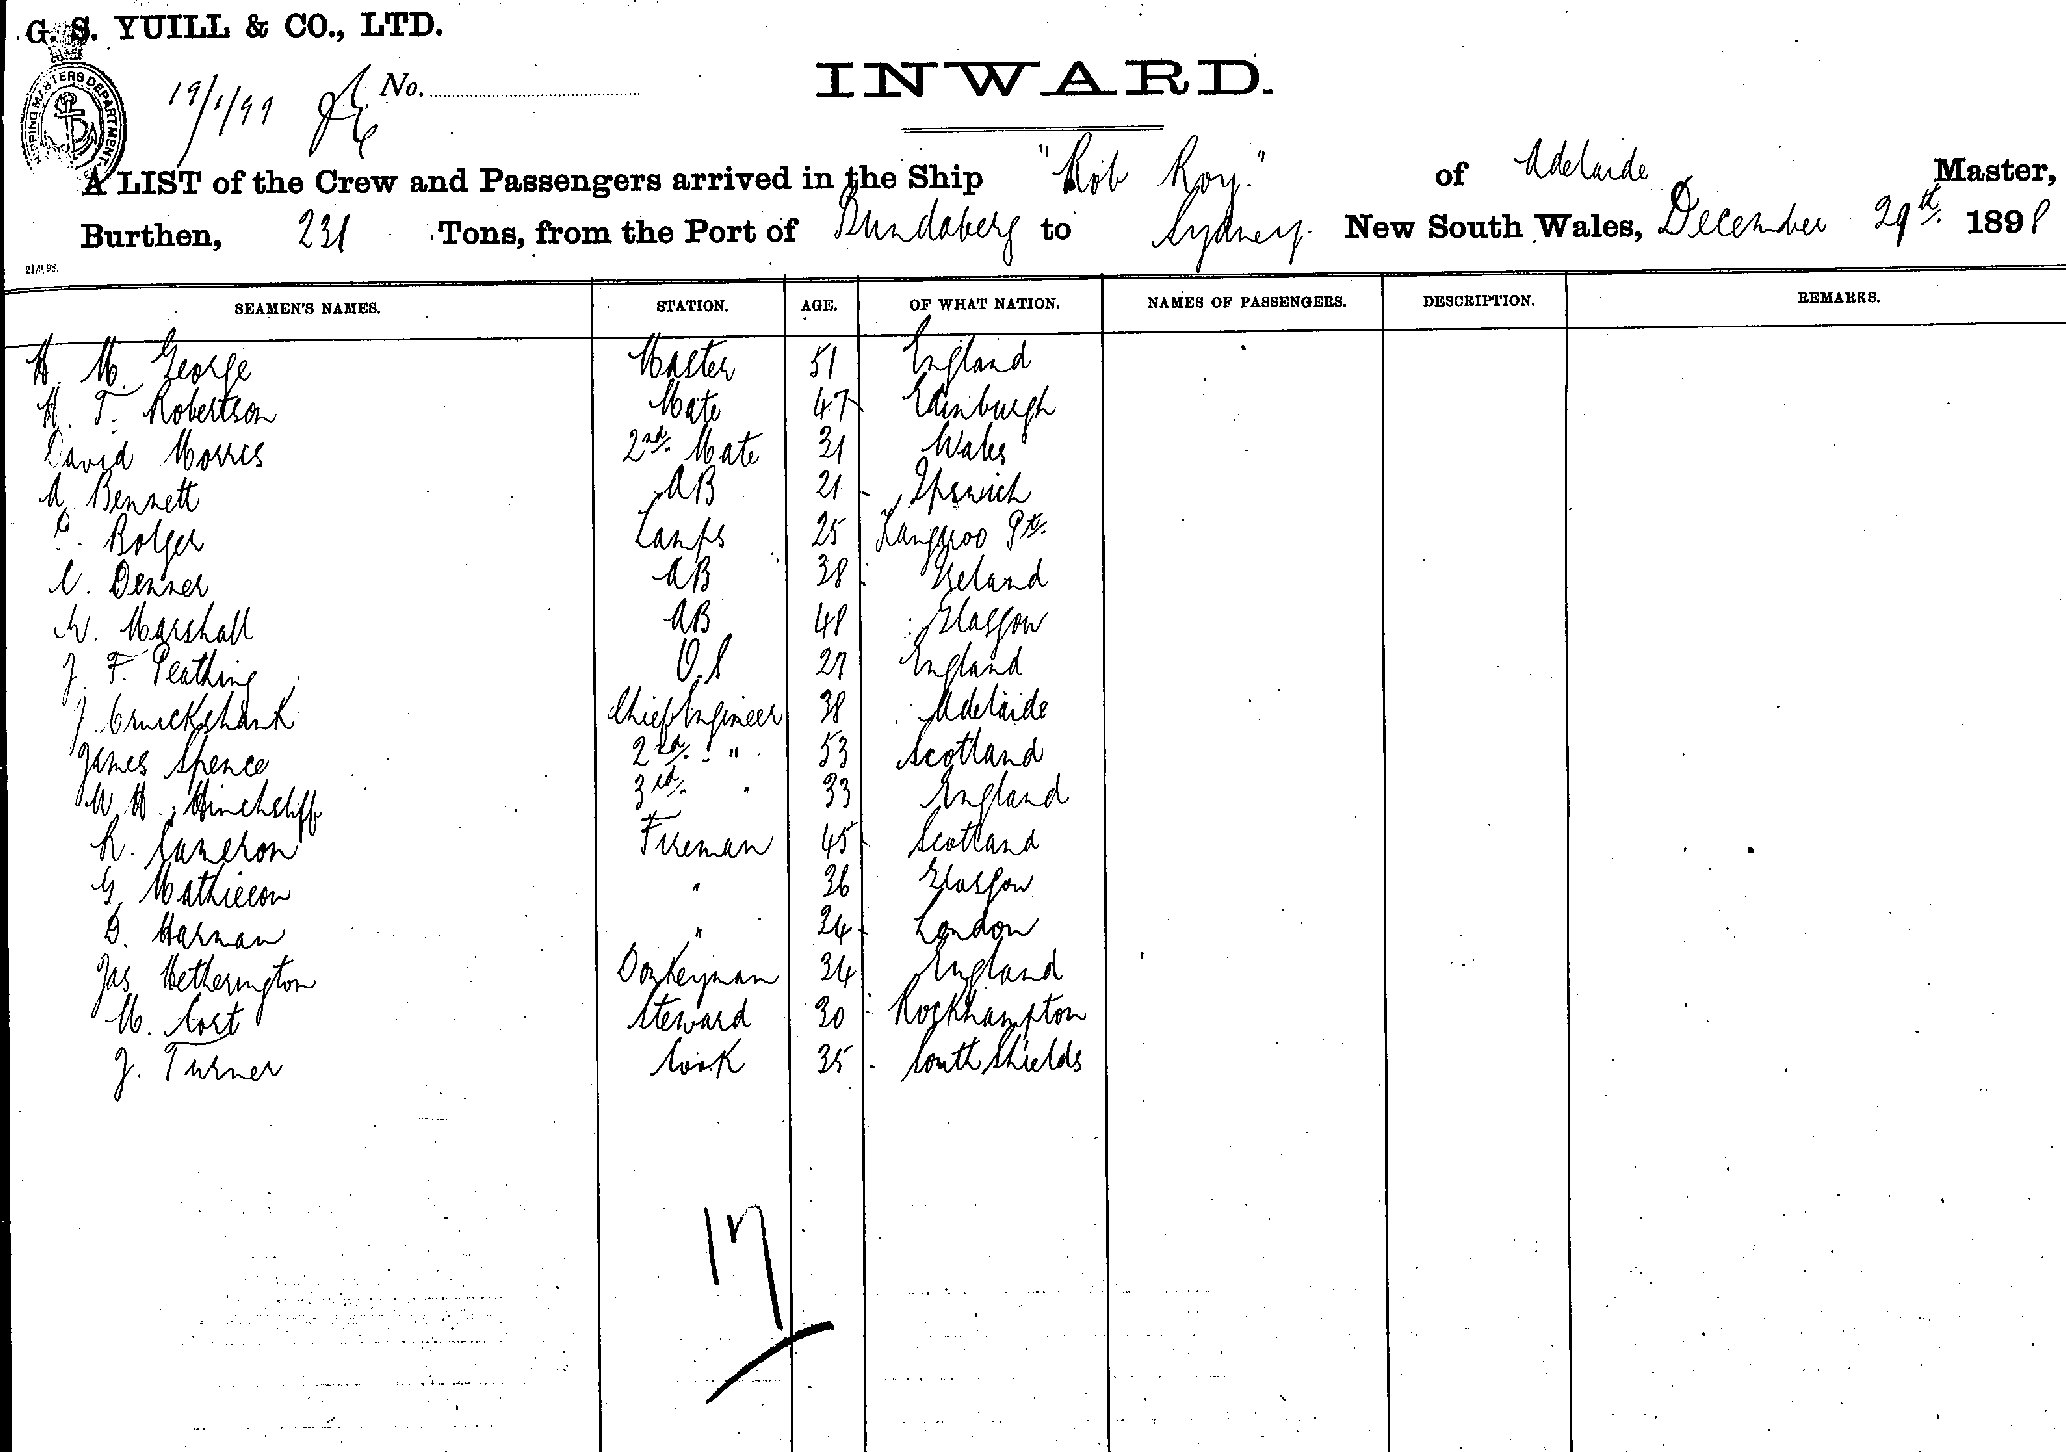 G. S. YUILL & CO., LTD.
INWARD.
19/1/99 No.
SHIPPING MASTERS DEPARTMENT
A LIST of the Crew and Passengers arrived in the Ship "Rob Roy" of Adelaide Master,
Burthen, 231 Tons, from the Port of Bundaberg to Sydney. New South Wales, December 29th. 1898
SEAMEN'S NAMES. STATION. AGE. OF WHAT NATION. NAMES OF PASSENGERS. DESCRIPTION. REMARKS.
H. M. George Master 51 England
H. T. Robertson Mate 47 Edinburgh
David Morris 2nd. Mate 31 Wales
A. Bennett AB 21 Ipswich
Bolger Lamps 25 Kangaroo Pt.
Denner AB 38 Ireland
W. Marshall AB 48 Glasgow
J. F. Peathing O.S 27 England
J. Cruickshank Chief Engineer 38 Adelaide
James Spence 2nd. " 53 Scotland
W H. Hinchcliff 3rd. " 33 England
R. Cameron Fireman 45 Scotland
G. Mathieson " 36 Glasgow
D. Harman " 24 London
Jas Hetherington Donkeyman 34 England
M. Cort Steward 30 Rockhampton
J. Turner Cook 35 South Shields
17